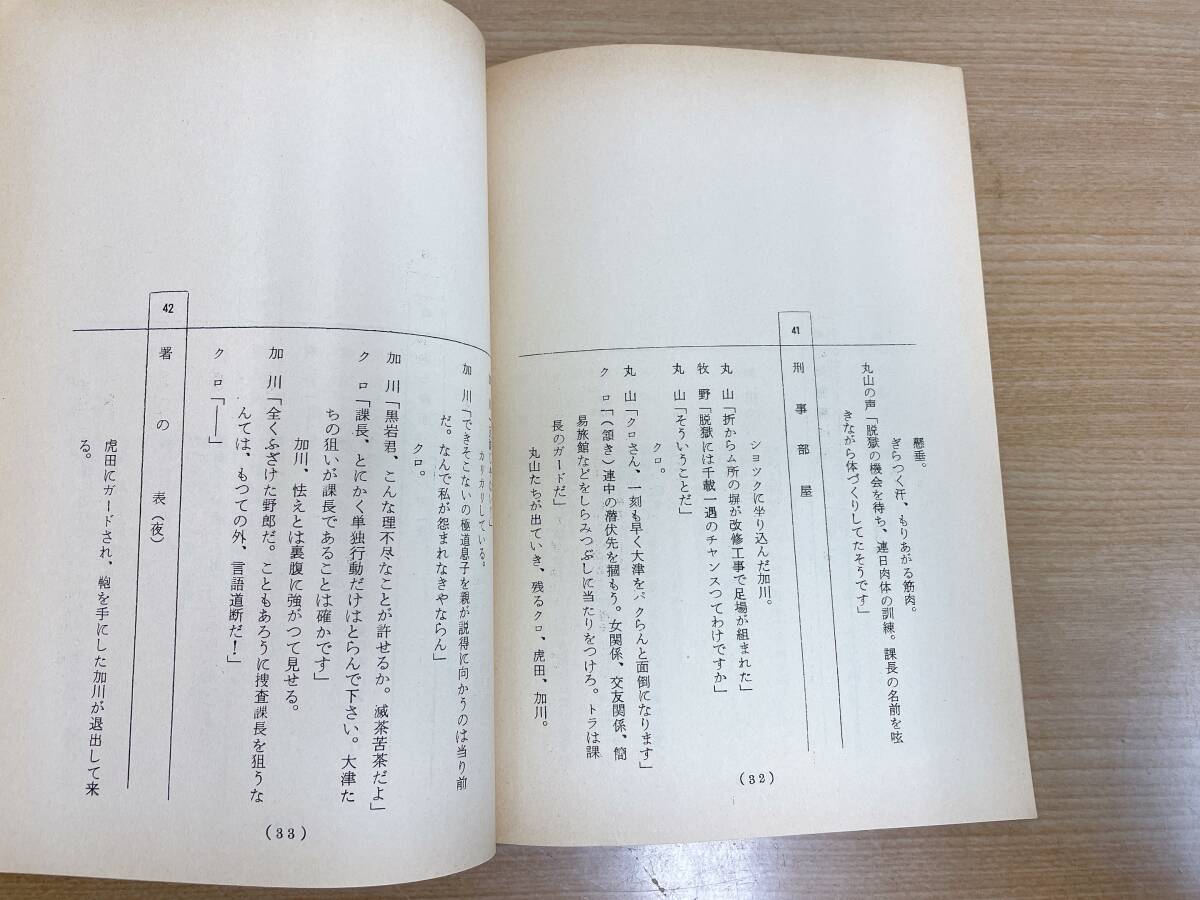 懸垂。
ぎらつく汗、もりあがる筋肉。
丸山の声「脱獄の機会を待ち、連日肉体の訓練。課長の名前を呟
きながら体づくりしてたそうです」
41 刑事部屋
ショックに坐り込んだ加川。
丸山「折からム所の塀が改修工事で足場が組まれた」
牧野「脱獄には千載一遇のチャンスつてわけですか」
丸山「そういうことだ」
クロ。
丸山「クロさん、一刻も早く大津をパクらんと面倒になります」
クロ「(頷き)連中の潜伏先を摑もう。女関係、交友関係、簡
易旅館などをしらみつぶしに当たりをつけろ。トラは課
長のガードだ」
丸山たちが出ていき、残るクロ、虎田、加川。
(32)
カリカリしている。
加川「できそこないの極道息子を親が説得に向かうのは当り前
だ。なんで私が怨まれなきやならん」
クロ。
加川「黒岩君、こんな理不尽なことが許せるか。滅茶苦茶だよ」
クロ「課長、とにかく単独行動だけはとらんで下さい。大津た
ちの狙いが課長であることは確かです」
加川、怯えとは裏腹に強がつて見せる。
加川「全くふざけた野郎だ。こともあろうに捜査課長を狙うな
んては、もつての外、言語道断だ!」
クロ「――」
42 署の表(夜)
虎田にガードされ、鞄を手にした加川が退出して来
る。
(33)